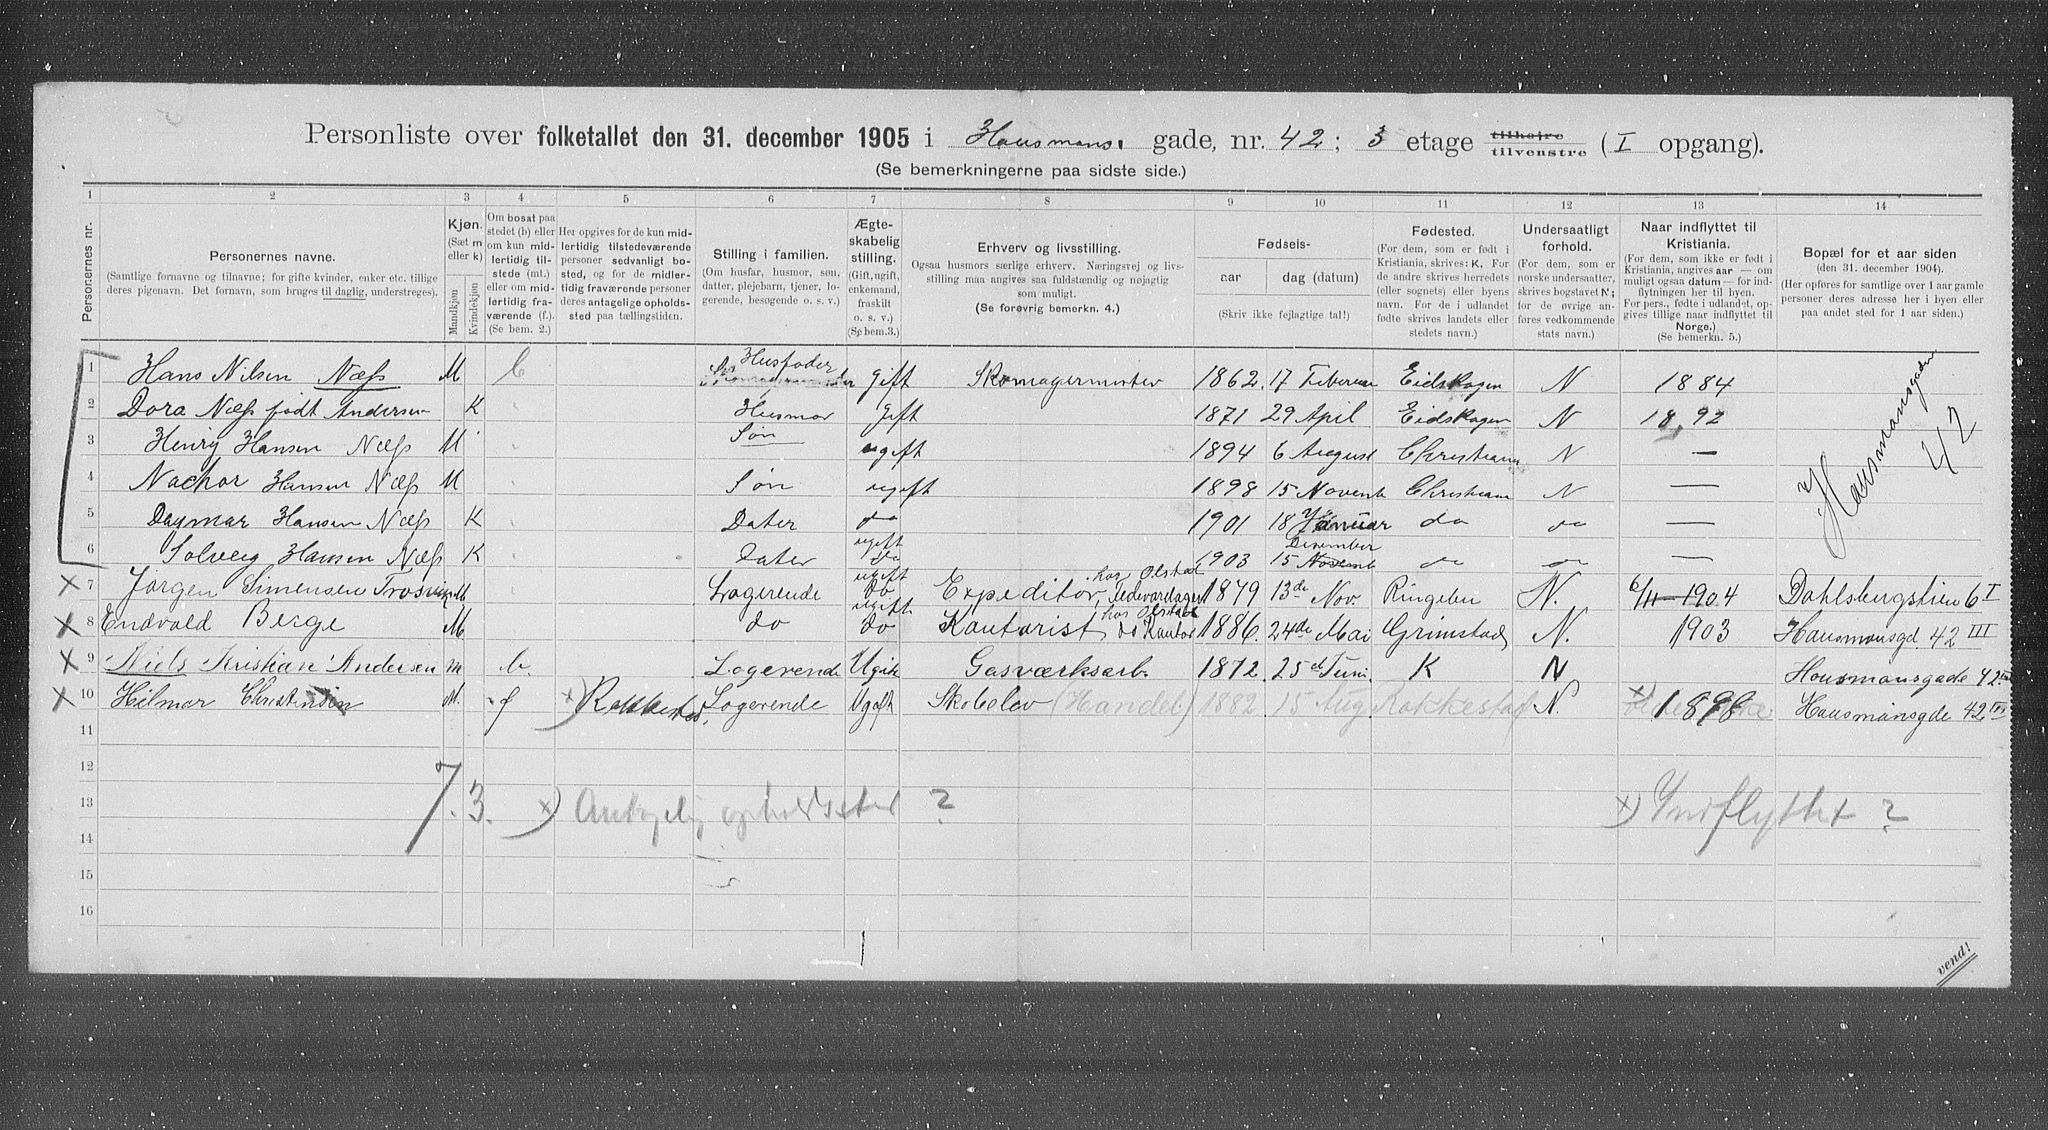 Personliste over folketallet den 31. december 1905 i Hausmans. gade, nr. 42; 3 etage tilhøire tilvenstre (I opgang).
(Se bemerkningerne paa sidste side.)
1 2 3 4 5 6 7 8 9 10 11 12 13 14
Personernes nr.
Personernes navne.
(Samtlige fornavne og tilnavne; for gifte kvinder, enker etc. tillige deres pigenavn. Det fornavn, som bruges til daglig, understreges).
Kjøn. (Sæt m eller k)
Mandkjøn Kvindekjøn
Om bosat paa stedet (b) eller om kun midlertidig tilstede (mt.) eller om midlertidig fraværende (f.) (Se bem. 2.)
Her opgives for de kun midlertidig tilstedeværende personer sedvanligt bosted, og for de midlertidig fraværende personer deres antagelige opholdssted paa tællingstiden.
Stilling i familien.
(Om husfar, husmor, søn, datter, plejebarn, tjener, logerende, besøgende o. s. v.)
Ægteskabelig stilling.
(Gift, ugift, enkemand, fraskilt o. s. v.) (Se bem. 3.)
Erhverv og livsstilling.
Ogsaa husmors særlige erhverv. Næringsvej og livsstilling maa angives saa fuldstændig og nøjagtig som muligt.
(Se forøvrig bemerkn. 4.)
Fødsels-
aar dag (datum)
(Skriv ikke fejlagtige tal!)
Fødested.
(For dem, som er født i Kristiania, skrives: K. For de andre skrives herredets (eller sognets) eller byens navn. For de i udlandet fødte skrives landets eller stedets navn.)
Undersaatligt forhold.
(For dem, som er norske undersaatter, skrives bogstavet N; for de øvrige anføres vedkommende stats navn.)
Naar indflyttet til Kristiania.
(For dem, som ikke er født i Kristiania, angives aar — om muligt ogsaa datum — for indflytningen her til byen. For pers., fødte i udlandet, opgives tillige naar indflyttet til Norge.)
(Se bemerkn. 5.)
Bopæl for et aar siden
(den 31. december 1904).
(Her opføres for samtlige over 1 aar gamle personer deres adresse her i byen eller paa andet sted for 1 aar siden.)
1 Hans Nilsen Næss M b Husfader gift Skomagermester 1862. 17 Februar Eidskogen N 1884
2 Dora Næss født Andersen K Husmor gift 1871 29 April Eidskogen N 1892
3 Henry Hansen Næss M Søn ugift 1894 6 August Christiania N —
4 Nachor Hansen Næss M Søn ugift 1898 15 Novemb Christiania N —
5 Dagmar Hansen Næss K Dater do 1901 18 Januar do do —
6 Solveig Hansen Næss K Dater ugift do 1903 15 Novemb Desember do do —
Hausmansgaden 42
7 Jørgen Simensen M Logerende ugift do Expeditør, hos Olstad 1879 13de Nov. Ringebu N. 6/11 1904 Dahlsbergstien 6 I
8 Endvald Berge M do ugift do Kontorist hos Olstad do Kontor 1886. 24de Mai Grimstad N. 1903 Hausmansgd. 42 III
9 Niels Kristian Andersen m b. Logerende Ugift Gasværksarb. 1872. 25d Juni K N Hausmansgade 42 III
10 Hilmar Christensen M. f x) Rakkestad, Logerende Ugift (Handel) 1882 15 Aug Rakkestad N. x) 1898 Hausmansgde 42 III
11
12
7. 3.
13 x) Antagelig opholdssted ? x) Indflyttet ?
14
15
16
vend!